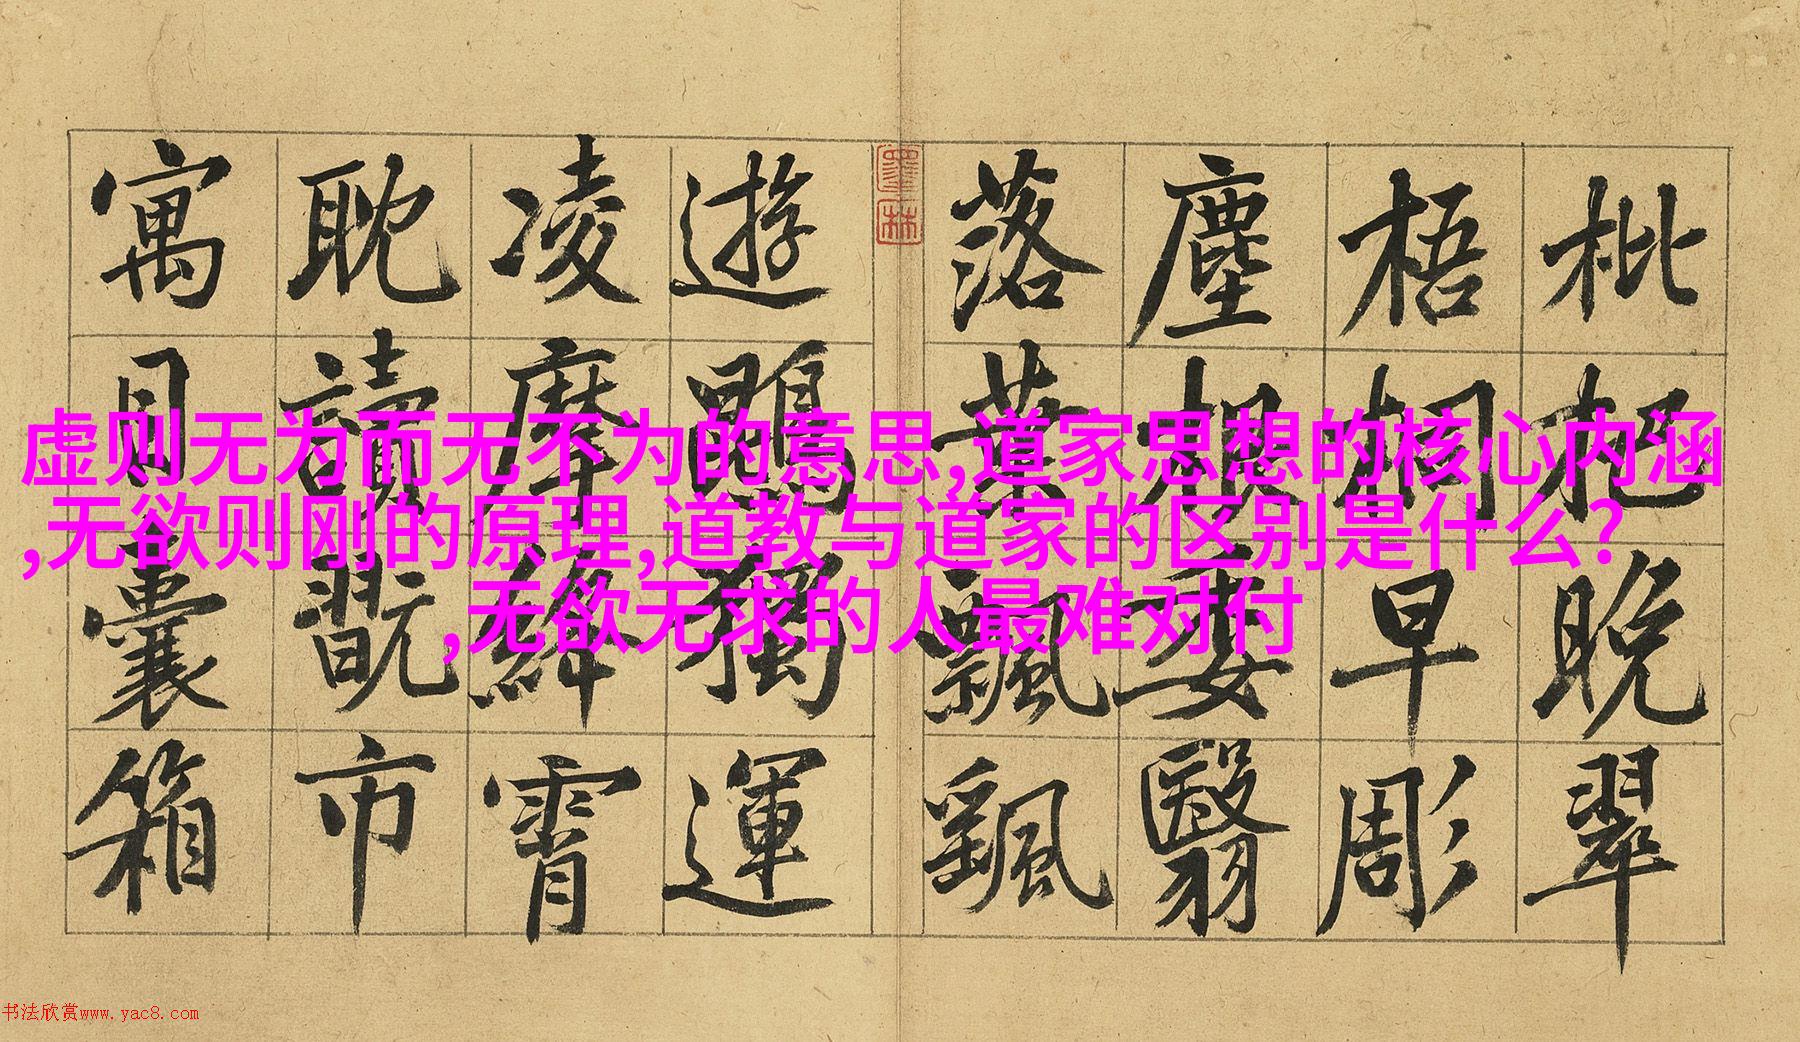 枇杷晚翠
梧桐早彫
塵根委翳
落葉飄颻
墨林
遊鵾獨運
凌摩絳霄
耽讀翫市
寓目囊箱
虚则无为而无不为的意思,道家思想的核心内涵
,无欲则刚的原理,道教与道家的区别是什么?
,无欲无求的人最难对付
书法欣赏www.yac8.com